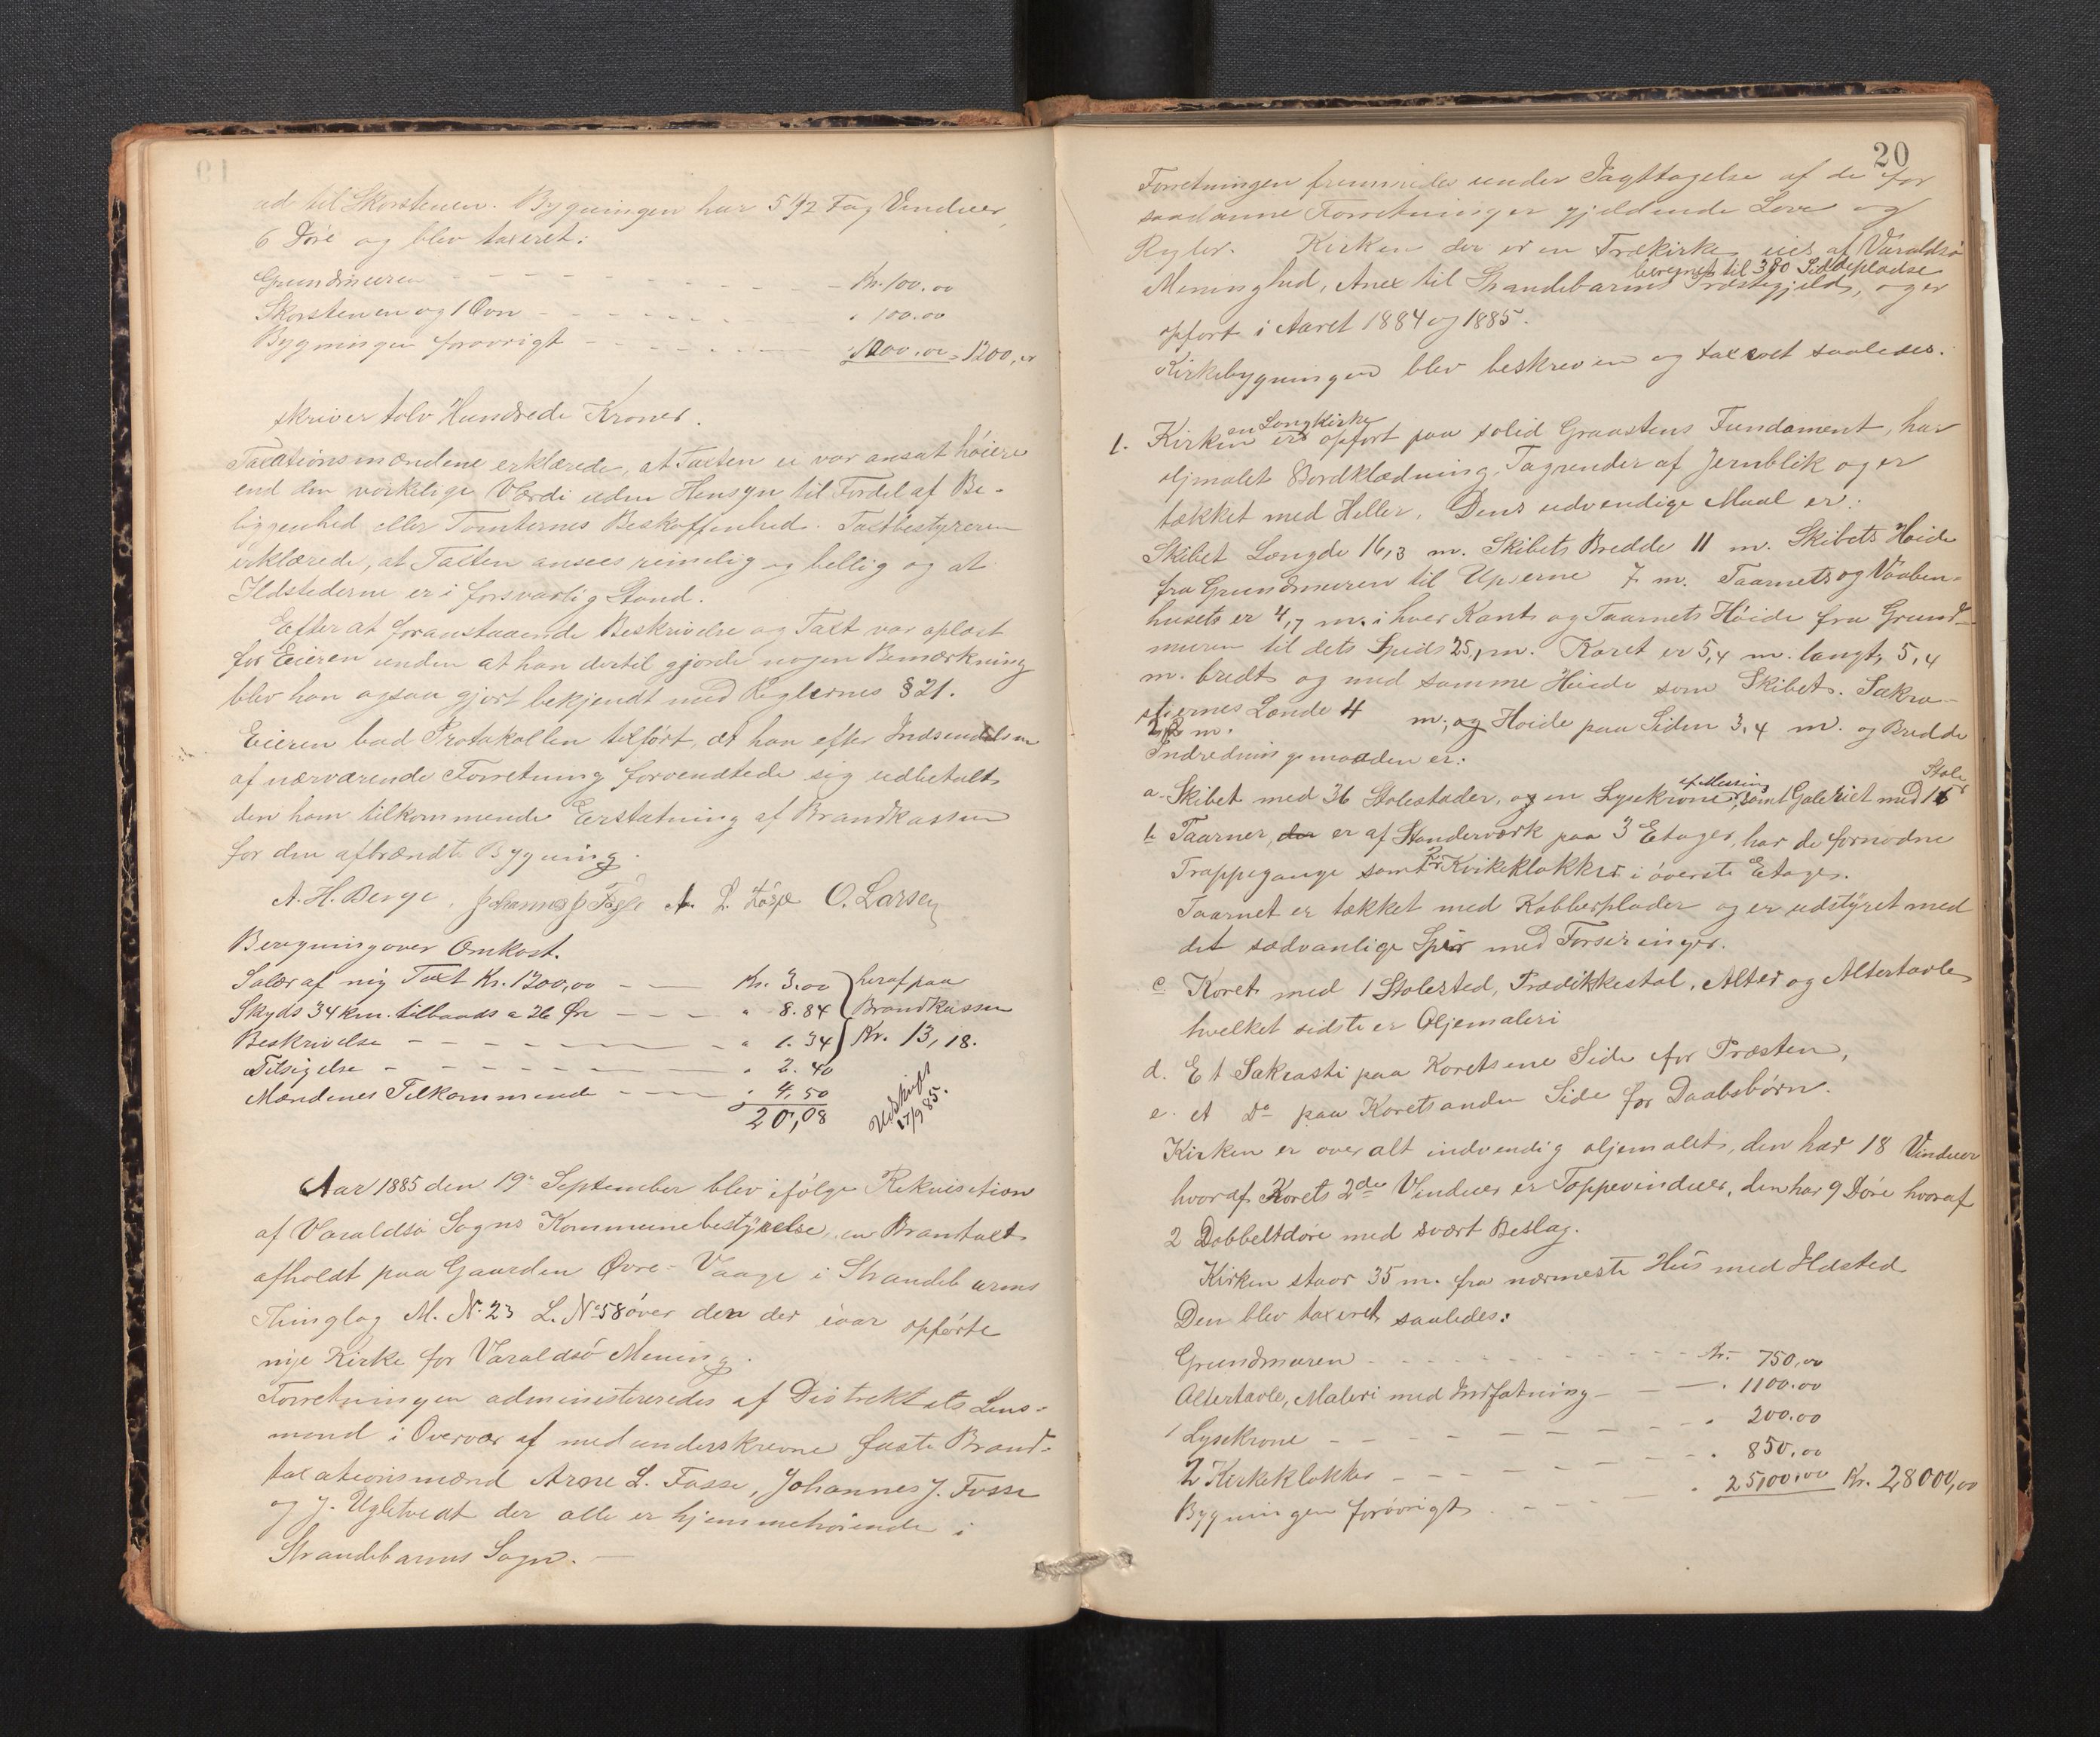 ud til Skorstenen. Bygningen har 5 1/2 Fag Vinduer,
6 Döre og blev taxeret:
Grundmuren - - - - - - - Kr. 100.00
Skorstenen og 1 Ovn - - - - - - " 100.00
Bygningen forøvrigt - - - - - - " 1000.00 = 1200,00
skriver tolv Hundrede Kroner.
Taxationsmændene erklærede, at Taxten ei var ansat höiere
end den virkelige Værdi uden Hensyn til Fordel af Be-
liggenhed eller Tomternes Beskaffenhed. Taxtbestyreren
erklærede, at Taxten ansees rimelig og billig og at
Ildstederne er i forsvarlig Stand.
Efter at foranstaaende Beskrivelse og Taxt var oplæst
for Eieren uden at han dertil gjorde nogen Bemærkning
blev han ogsaa gjort bekjendt med Reglernes § 21.
Eieren bad Protokollen tilfört, at han efter Indsendelsen
af nærværende Forretning forventede sig udbetalt
den ham tilkommende Erstatning af Brandkassen
for den afbrændte Bygning.
A. H. Berge. Johannes J Fosse A. L. Fosse O. Larsen
Beregning over Omkost.
Salær af nig Taxt Kr. 1200,00 - - Kr. 3.00 heraf paa
Skyds 34 km. tilbaads a 26 Øre - - - " 8.84 Brandkassen
Beskrivelse - - - - - - " 1.34 Kr. 13,18.
Tilsigelse - - - - - - " 2.40
Mændenes Tilkommende - - - " 4,50
20,08
Udskrift
17/9 85.
Aar 1885 den 19de September blev ifölge Rekvisition
af Varaldsö Sogns Kommunebestÿrelse en Brantaxt
afholdt paa Gaarden Øvre-Vaage i Strandebarms
Thinglag M. No 23 L. No 58 över den der iaar opförte
nÿe Kirke for Varaldsö Mening.
Forretningen administreredes af Distriktets Lens-
mand i Overvær af medunderskrevne faste Brand-
taxationsmænd Arne L. Fosse, Johannes J. Fosse
og J. Ugletveat der alle er hjemmehörende i
Strandebarms Sogn. -
20
Forretningen fremmedes under Iagttagelse af de for
saadanne Forretninger gjeldende Love og
Regler. Kirken der er en Trækirke eies af Varaldsö
beregnet til 380 Siddepladse
Meninghed, Anex til Strandebarms Præstegjeld, og er
opfört i Aaret 1884 og 1885.
Kirkebygningen blev beskreven og taxeret saaledes.
en Langkirke
1. Kirken er opfört paa solid Graastens Fundament, har
oljmalet Bordklædning, Tagrender af Jernblik og er
tækket med Heller. Dens udvendige Maal er:
Skibet Længde 16,3 m. Skibets Bredde 11 m. Skibets Höide
fra Grundmuren til Uperne 7 m. Taarnets og Vaaben-
husets er 4,7 m. i hver Kant og Taarnets Höide fra Grund-
muren til dets Spids 25,1 m. Koret er 5,4 m. langt, 5,4
m. bredt og med samme Höide som Skibet. Sakra-
stiernes Længde 4 m, og Höide paa Siden 3,4 m. og Bredde
2,2 m.
Indredningsmaaden er:
af Messing Stole
a. Skibet med 36 Stolestader, og en Lysekrone, samt Galeriet med 15
b Taarnet, der er af Standerværk paa 3 Etager, har de fornødne
Trappegange samt 2 Kirkeklokker i överste Etage.
Taarnet er tækket med Kobberplader og er udstÿret med
det sædvanlige Spir med Forseringer.
c. Koret med 1 Stolested, Prædikkestol, Alter og Altertavle
hvilket sidste er Oljemaleri
d. Et Sakrasti paa Korets ene Side for Præsten,
e. et Do paa Korets anden Side for Daabsbörn.
Kirken er overalt indvendig oljemalet, den har 18 Vinduer
hvoraf Korets 2de Vinduer er Toppevinduer, den har 9 Döre hvoraf
2 Dobbeltdöre med svært Beslag.
Kirken staar 35 m. fra nærmeste Hus med Ildsted
Den blev taxeret saaledes:
Grundmuren - - - - - - - Kr. 750,00
Altertavle, Maleri med Indfatning - - - " 1100.00
1 Lysekrone - - - - - - - " 200.00
2 Kirkeklokker - - - - - - " 850,00
Bygningen forövrigt - - - - " 25100,00 Kr. 28000,00